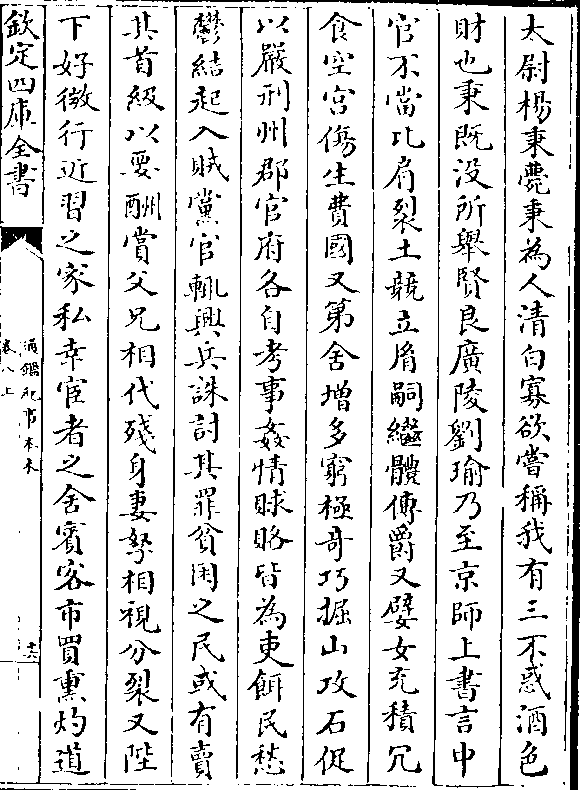 太尉楊秉薨秉為人清白寡欲嘗稱我有三不惑酒色
財也秉既没所舉賢良廣陵劉瑜乃至京師上書言中
官不當比肩裂土競立𦙍嗣繼體傳爵又嬖女充積冗
食空宮傷生費國又第舍增多窮極奇巧掘山攻石促
以嚴刑州郡官府各自考事姦情賕賂皆為吏餌民愁
鬱結起入賊黨官輒興兵誅討其罪貧困之民或有賣
其首級以要酬賞父兄相代殘身妻孥相視分裂又陛
下好微行近習之家私幸宦者之舍賓客市買熏灼道
欽定四庫全書
通鑑紀事本末
卷八上